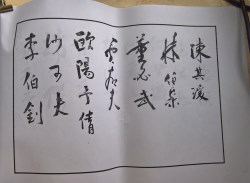 陳其瑗
林伯渠
董必武
夫
歐陽予倩
沙可夫
李伯釗